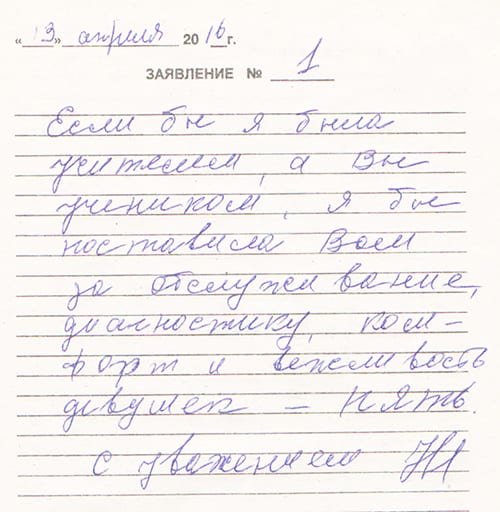 «13» апреля 2016 г.
ЗАЯВЛЕНИЕ № 1
Если бы я была
учителем, а Вы
учеником, я бы
поставила Вам
за обслуживание,
диагностику, ком-
форт и вежливость
девушек – пять.
С уважением